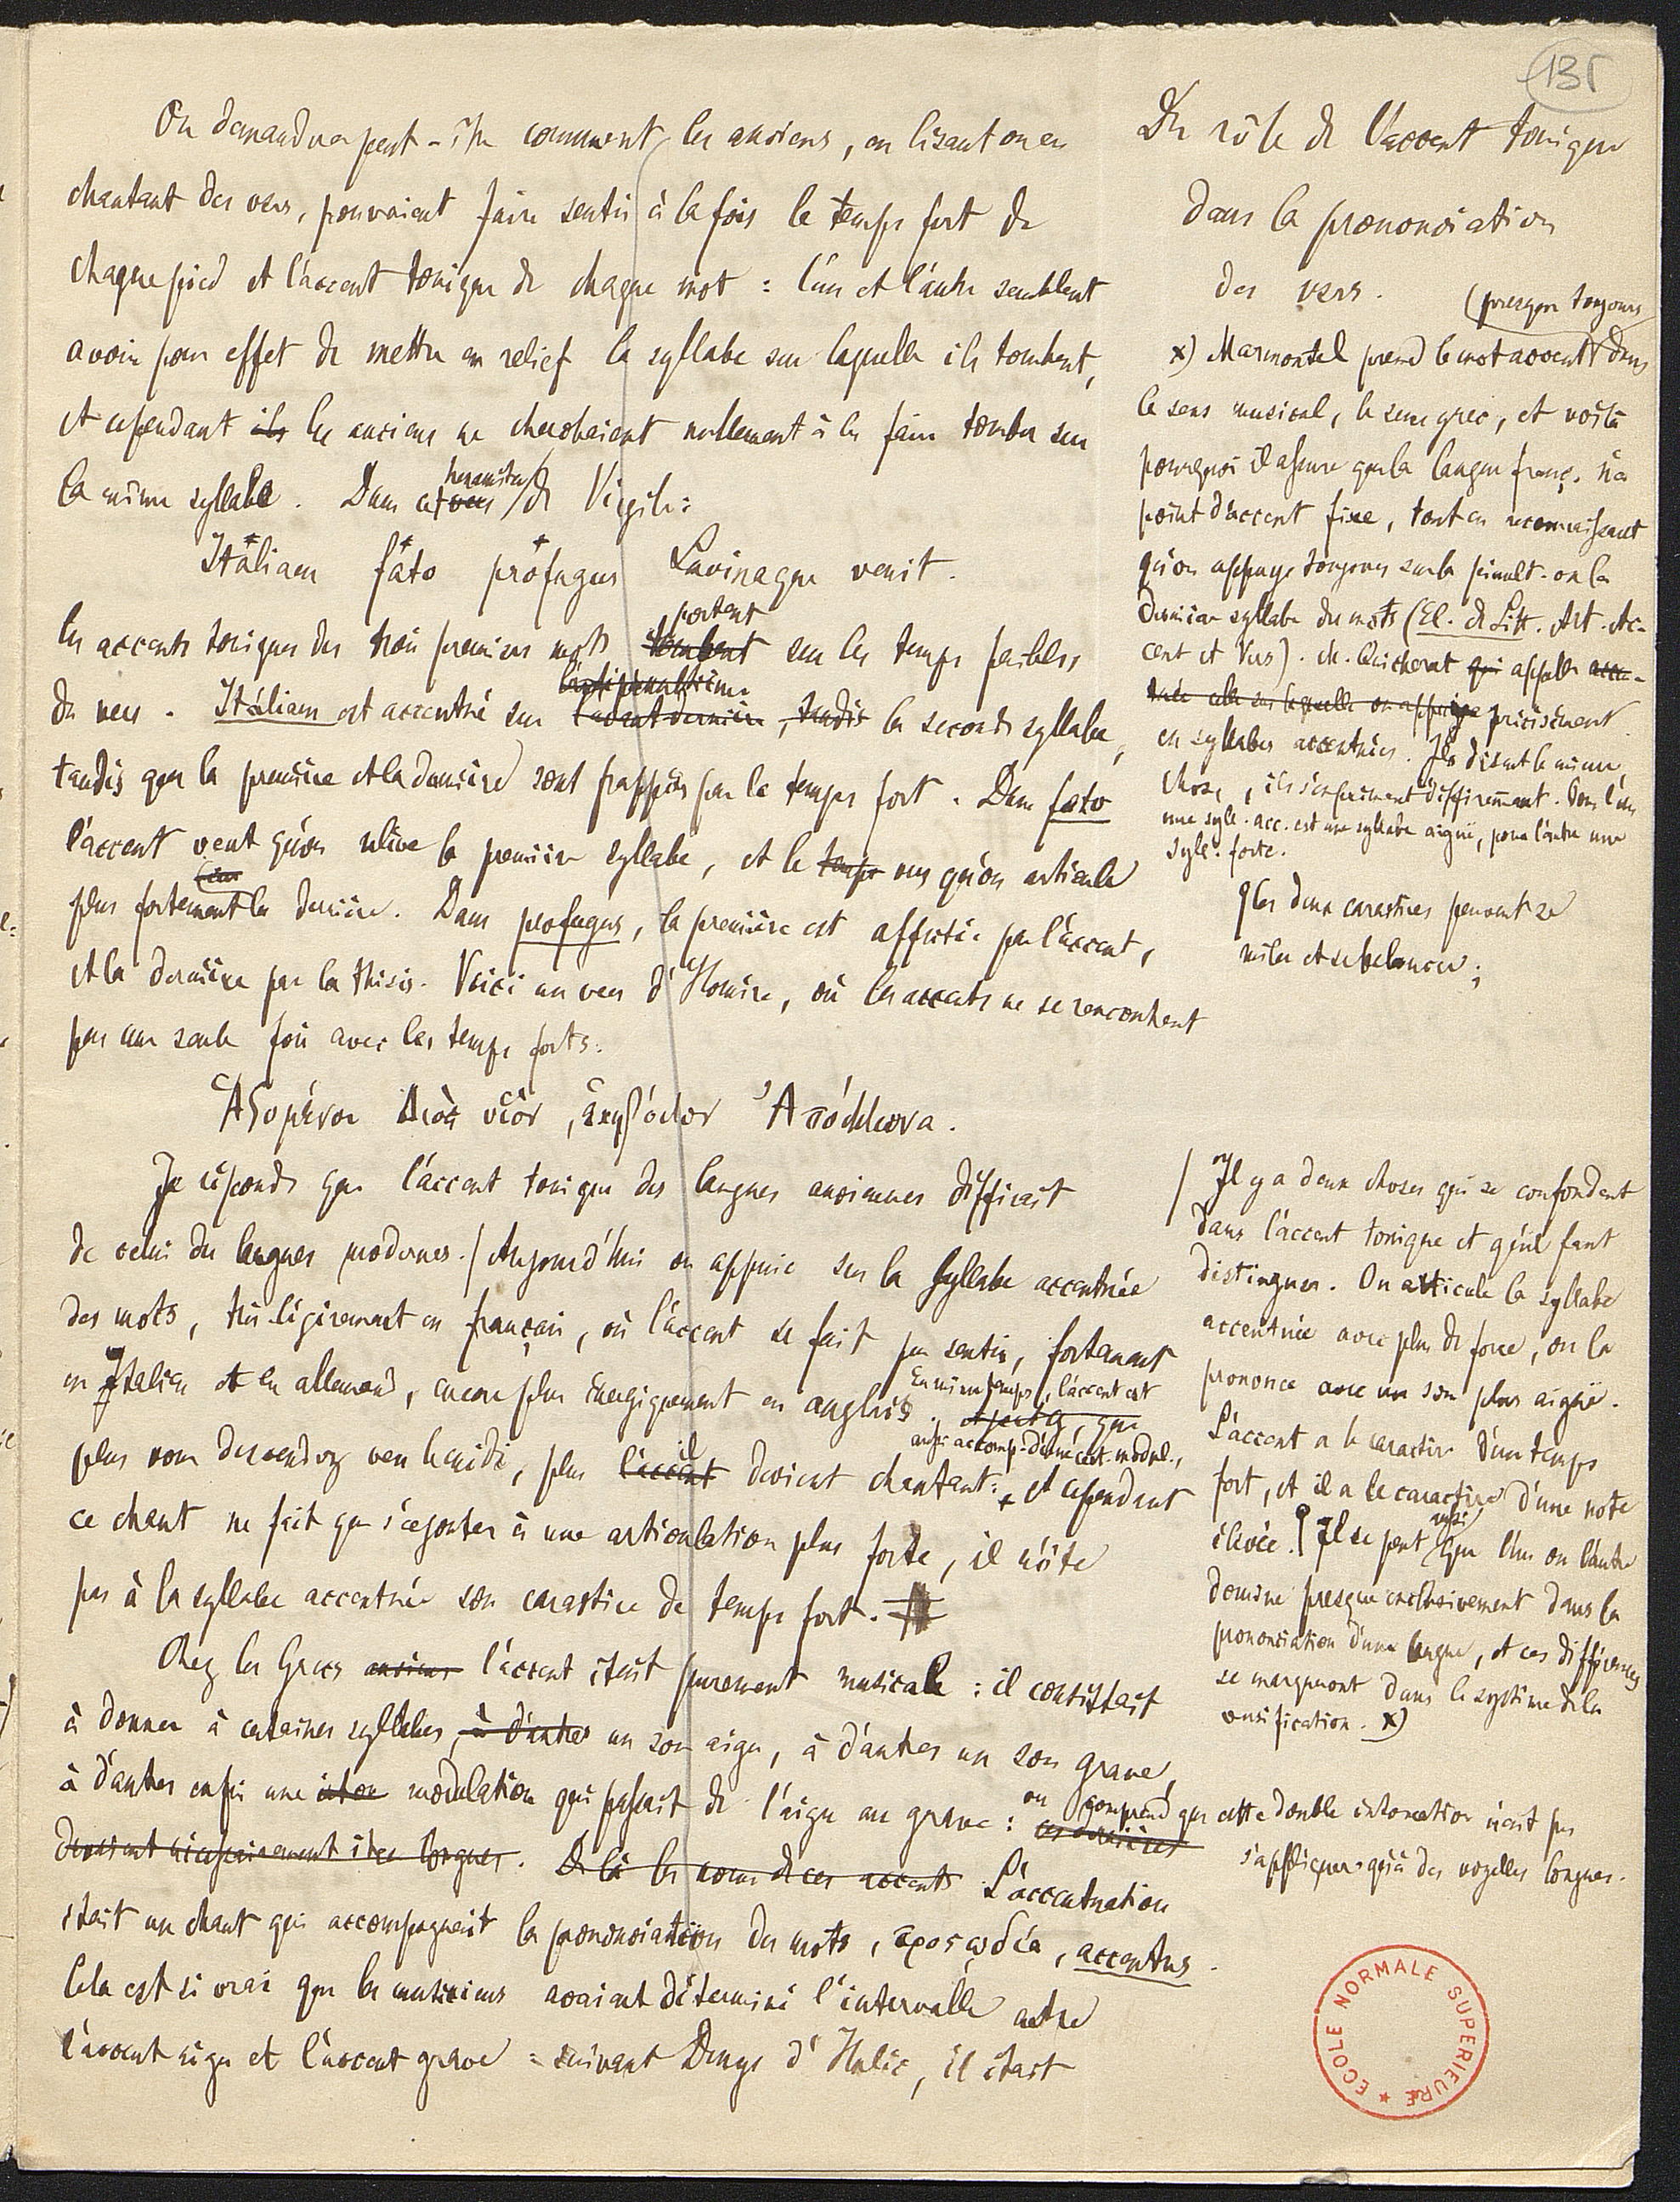 135
On demandera peut-être comment les anciens, en lisant ou en
chantant des vers, pouvaient faire sentir à la fois le temps fort de
chaque pied et l'accent tonique de chaque mot : l'un et l'autre semblent
avoir pour effet de mettre en relief la syllabe sur laquelle ils tombent,
et cependant ils les anciens ne cherchaient nullement à les faire tomber sur
la même syllabe. Dans cet vers hexamètre de Virgile :
Itáliam fáto prófugus Lavinaque venit.
les accents toniques des trois premiers mots tombent portent sur les temps faibles
du vers. Itáliam est accentué sur l'avant dernière l'antépenultième, tandis la seconde syllabe,
tandis que la première et la dernière sont frappées par le temps fort. Dans fato
l'accent veut qu'on élève la première syllabe, et le temps vers qu'on articule
plus fortement la dernière. Dans profugus, la première est affectée par l'accent,
et la dernière par la thésis. Voici un vers d'Homère, où les accents ne se rencontrent
pas une seule fois avec les temps forts :
Ἁζόμενοι Διὸς υἱὸν, ἑκηβόλον Ἀπόλλωνα.
Je réponds que l'accent tonique des langues anciennes différait
de celui des langues modernes. / Aujourd'hui on appuie sur la syllabe accentuée
des mots, très-légèrement en français, où l'accent se fait peu sentir, fortement
en Italien et en allemand, encore plus énergiquement en anglais. En même temps, l'accent est
aussi accomp. d'une cert. modul.,
plus vous descendez vers le midi, plus l'accent il devient chantant : et cependant
ce chant ne fait que s'ajouter à une articulation plus forte, il n'ôte
pas à la syllabe accentuée son caractère de temps fort.
Chez les Grecs anciens l'accent était purement musicale : il consistait
à donner à certaines syllabes, à d'autres un son aigu, à d'autres un son grave,
à d'autres enfin une modulation qui passait de l'aigu au grave : ces dernières on comprend que cette double intonation n'ait pu
s'appliquer qu'à des voyelles longues.
devaient nécessairement être longues. De là les noms de ces accents L'accentuation
était un chant qui accompagnait la prononciation des mots, προσῳδία, accentus.
Cela est si vrai que les musiciens avaient déterminé l'intervalle entre
l'accent aigu et l'accent grave : suivant Denys d'Halic, il était
Du rôle de l'accent tonique
dans la prononciation
des vers.
(presque toujours
x) Marmontel prend le mot accent dans
le sens musical, le sens grec, et voilà
pourquoi il assure que la langue franç. n'a
point d'accent fixe, tout en reconnaissant
qu'on appuye toujours sur la pénult. ou la
dernière syllabe des mots (El. de Litt. Art. Ac-
cent et Vers). M. Quicherat qui appelle accen-
tuée celle sur laquelle on appuye précisément
en syllabes accentuées. Ils disent la même
chose, ils s'expriment différemment. Pour l'un
une syll. acc. est une syllabe aiguë, pour l'autre une
syll. forte.
Ces deux caractères peuvent se
mêler et se balancer ;
/ Il y a deux choses qui se confondent
dans l'accent tonique et qu'il faut
distinguer. On articule la syllabe
accentuée avec plus de force, on la
prononce avec un son plus aiguë.
L'accent a le caractère d'un temps
fort, et il a le caractère d'une note
élevée. Il se peut aussi que l'un ou l'autre
domine presque exclusivement dans la
prononciation d'une langue, et ces différences
se marqueront dans le système de la
versification. x)
ECOLE NORMALE SUPERIEURE